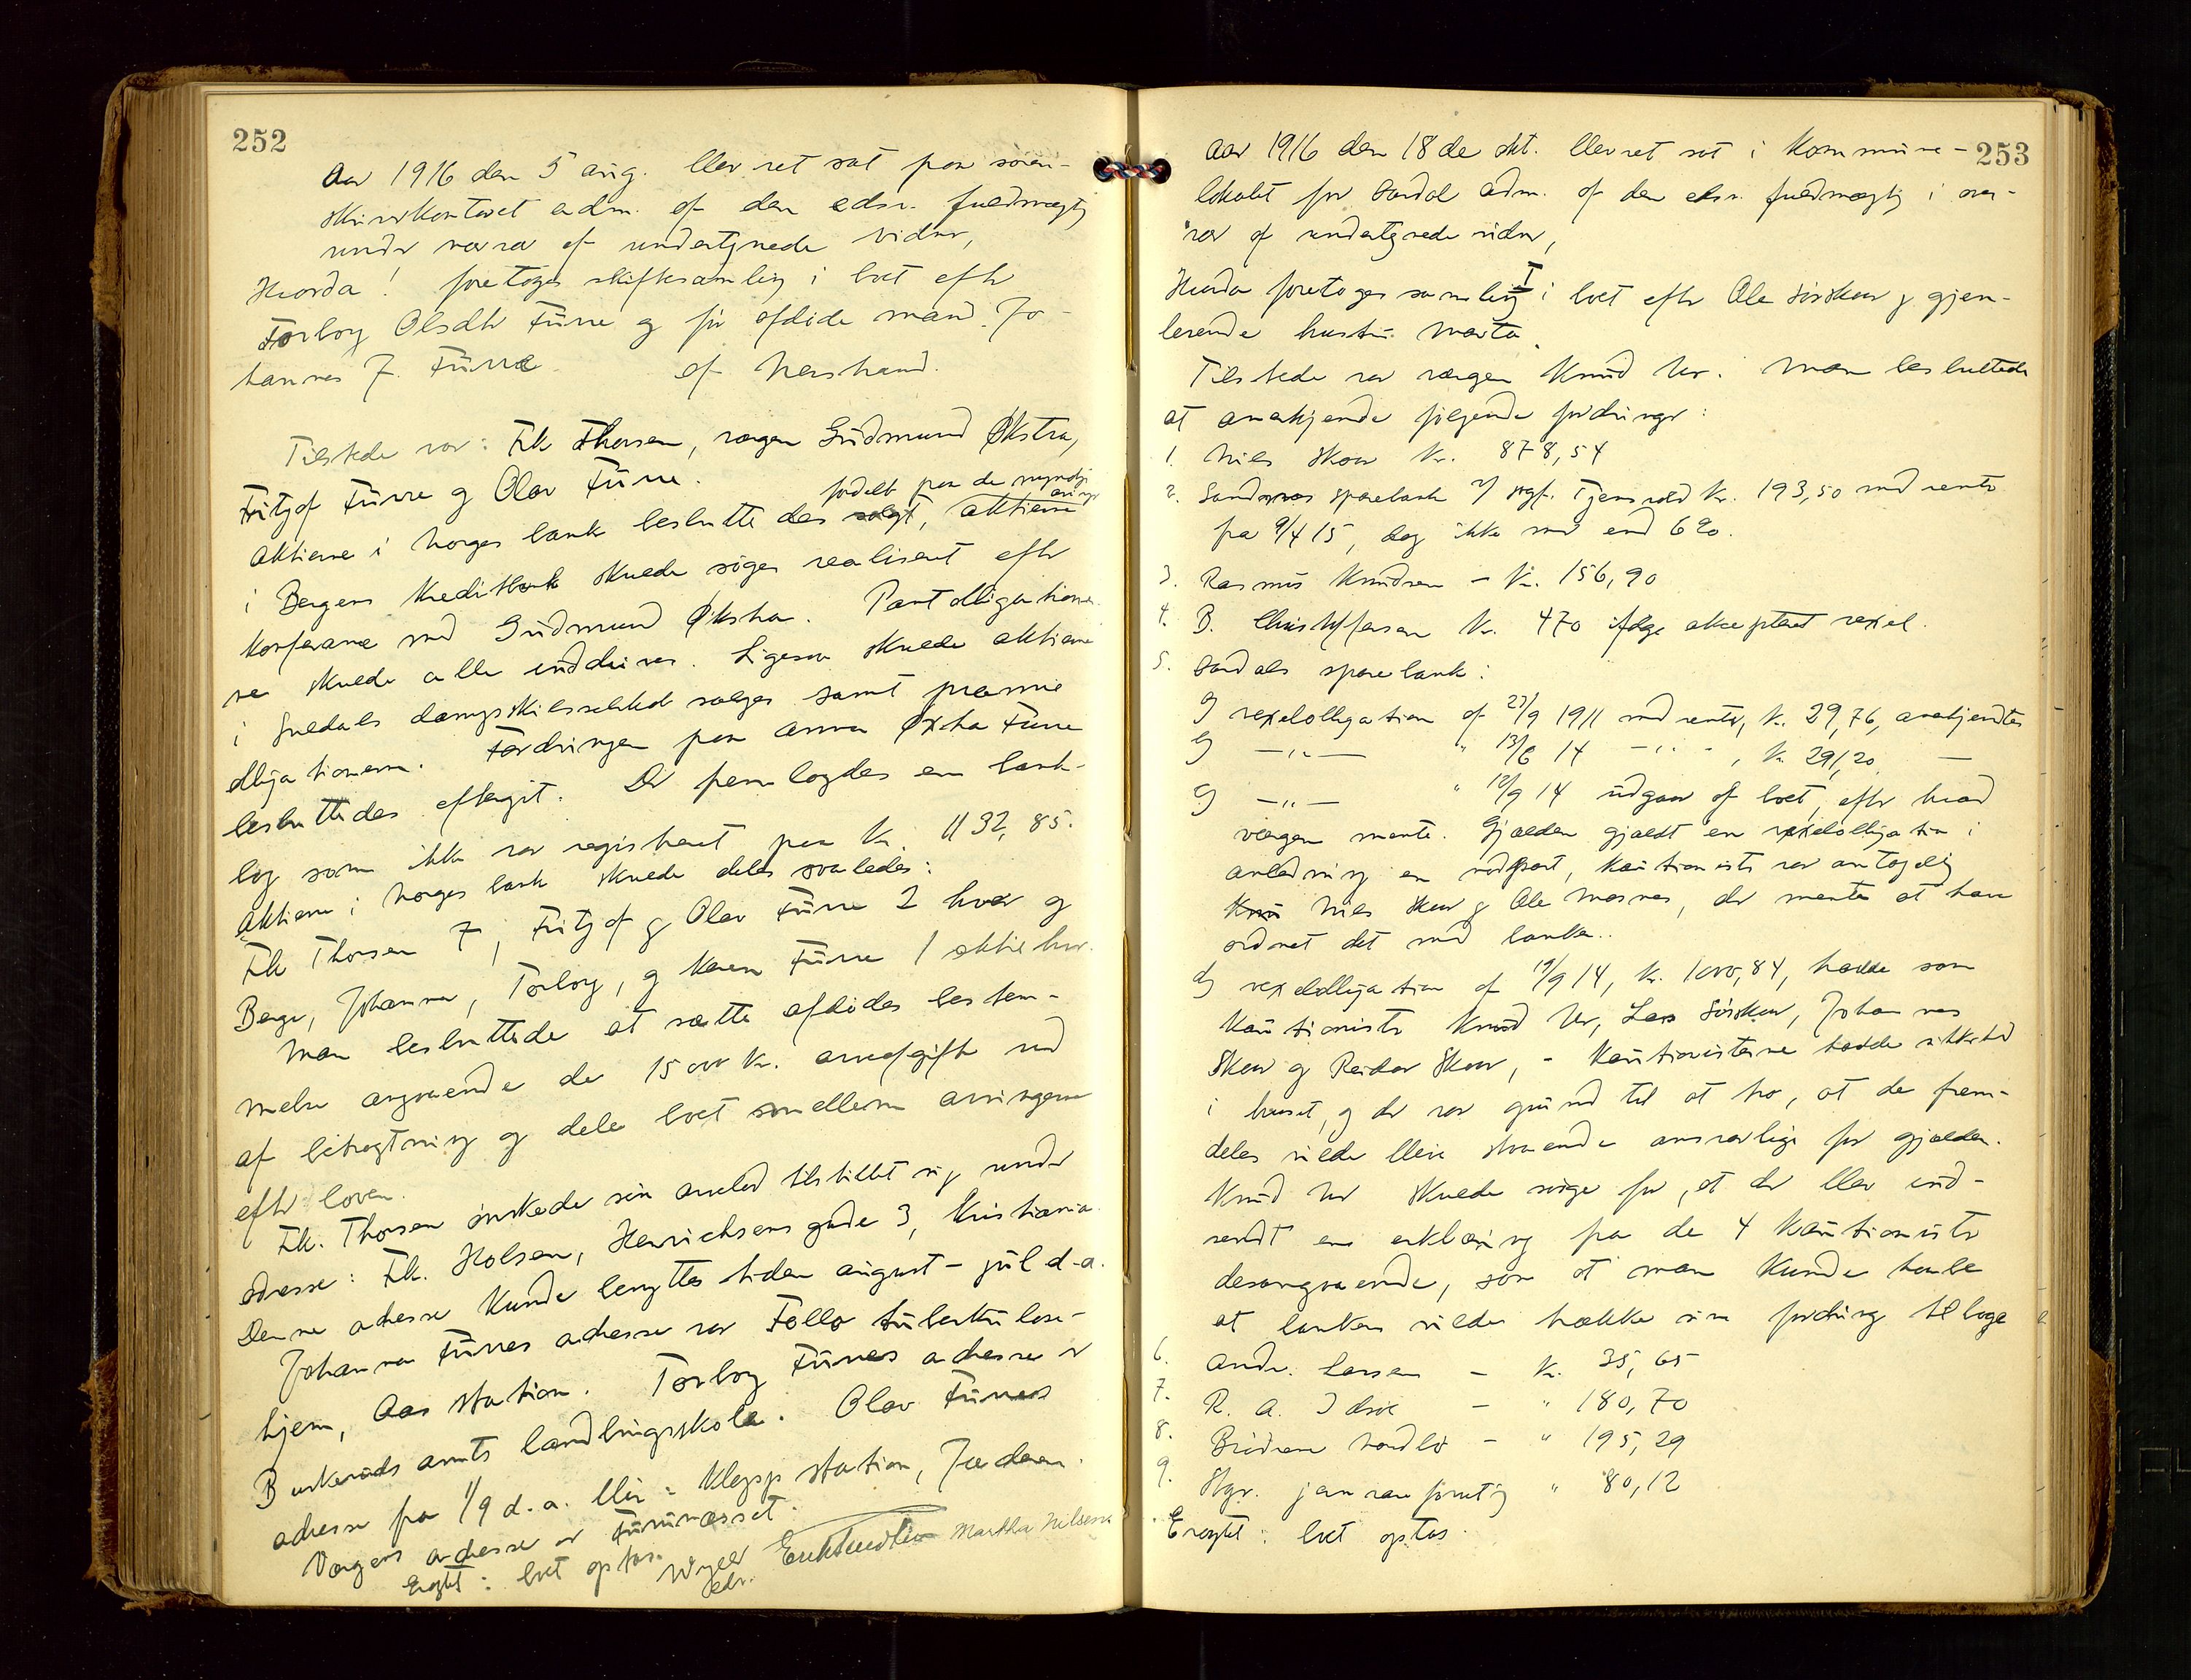 252
Aar 1916 den 5 aug. blev ret sat paa soren-
skriverkontoret adm. af den edsv. fuldmægtig
under nærvær af undertegnede vidner,
Hvorda! foretoges skiftesamling i boet efter
Torborg Olsdtr Furre og før afdøde mand Jo-
hannes J. Furre af Nerstrand.
Tilstede var: Frk Thorsen, vergen Gudmund Økstra,
Fritjof Furre og Olav Furre.
fordelt paa de myndige
arvinger
Aktierne i Norges bank besluttedes solgt, aktierne
i Bergens Kreditbank skulde søges realiseret efter
konferanse med Gudmund Økstra. Pantobligationer
ne skulde alle inddrives. Ligesaa skulde aktierne
i Suldals dampskibsselskab sælges samt præmie
obligationerne. Fordringen paa Anna Øxtra Furre
besluttedes eftergit. Der fremlagdes en bank-
bog som ikke var registreret paa kr. 1132,85.
Aktierne i Norges bank skulde deles saaledes:
Frk Thorsen 7, Fritjof og Olav Furre 2 hver og
Berge, Johanna, Torborg, og Karen Furre 1 aktie hver.
Man besluttede at sætte afdødes bestem-
melse angaaende de 15000 kr. arveafgift ud
af betragtning og dele boet imellem arvingerne
efter loven.
Frk. Thorsen ønskede sin arvelod tilstillet sig under
adresse: Frk. Holsen, Henrichsens gade 3, Kristiania.
Denne adresse kunde benyttes tiden august - jul d.a.
Johanna Furres adresse var Follo tuberkulose-
hjem, Aas station. Torborg Furres adresse er
Buskeruds amts landbrugsskole. Olav Furres
adresse fra 1/9 d.a. blir: Klepp station, Jæderen.
Vergens adresse er Furunæsset.
Eragtet: boet optas.
edv. Erik Knudsen Martha Nilsen
253
Aar 1916 den 18de okt. blev ret sat i kommune-
lokalet for Aardal adm. af den edsv. fuldmægtig i over-
vær af undertegnede vidner,
Hvorda foretoges samling I i boet efter Ole Sørskaar og gjen-
levende hustru Marta.
Tilstede var vergen Knud Ur. Man besluttede
at anerkjende følgende fordringer:
1. Nils Skaar kr. 878,54
2. Sandnes sparebank v/ sagf. Tjensvold kr. 193,50 med renter
fra 9/4 15, dog ikke mer end 6%.
3. Rasmus Knudsen - kr. 156,90
4. B. Christoffersen kr. 470 ifølge akceptert vexel.
5. Aardals sparebank:
I vexelobligation af 27/9 1911 med renter, kr. 29,76, anerkjendtes
I -"- " 13/6 14 -"- " , kr. 291,20 -
I -"- " 12/9 14 udgaar af boet, efter hvad
vergen mente. Gjælden gjaldt en vexelobligation i
anledning en veipart, kautionister var antagelig
Knu Nils Skaar og Ole Mosnes, der mente at have
ordnet det med banken.
I vexelobligation af 19/9 14, kr. 1000,84, hadde som
kautionister Knud Ur, Lars Sørskaar, Johannes
Skaar og Reidar Skaar, - Kautionisterne hadde sikkerhed
i huset, og der var grund til at tro, at de frem-
deles vilde blive staaende ansvarlige for gjælden.
Knud Ur skulde sørge for, at der blev ind-
sendt en erklæring fra de 4 kautionister
desangaaende, saa at man kunde haabe
at banken vilde trække sin fordring tilbage
6. Andr. Larsen - kr. 35,65
7. R. A. Idsøe - " 180,70
8. Brødrene Nordbø - " 195,29
9. Stgr. jernvareforretg " 80,12
Eragtet: boet optas.